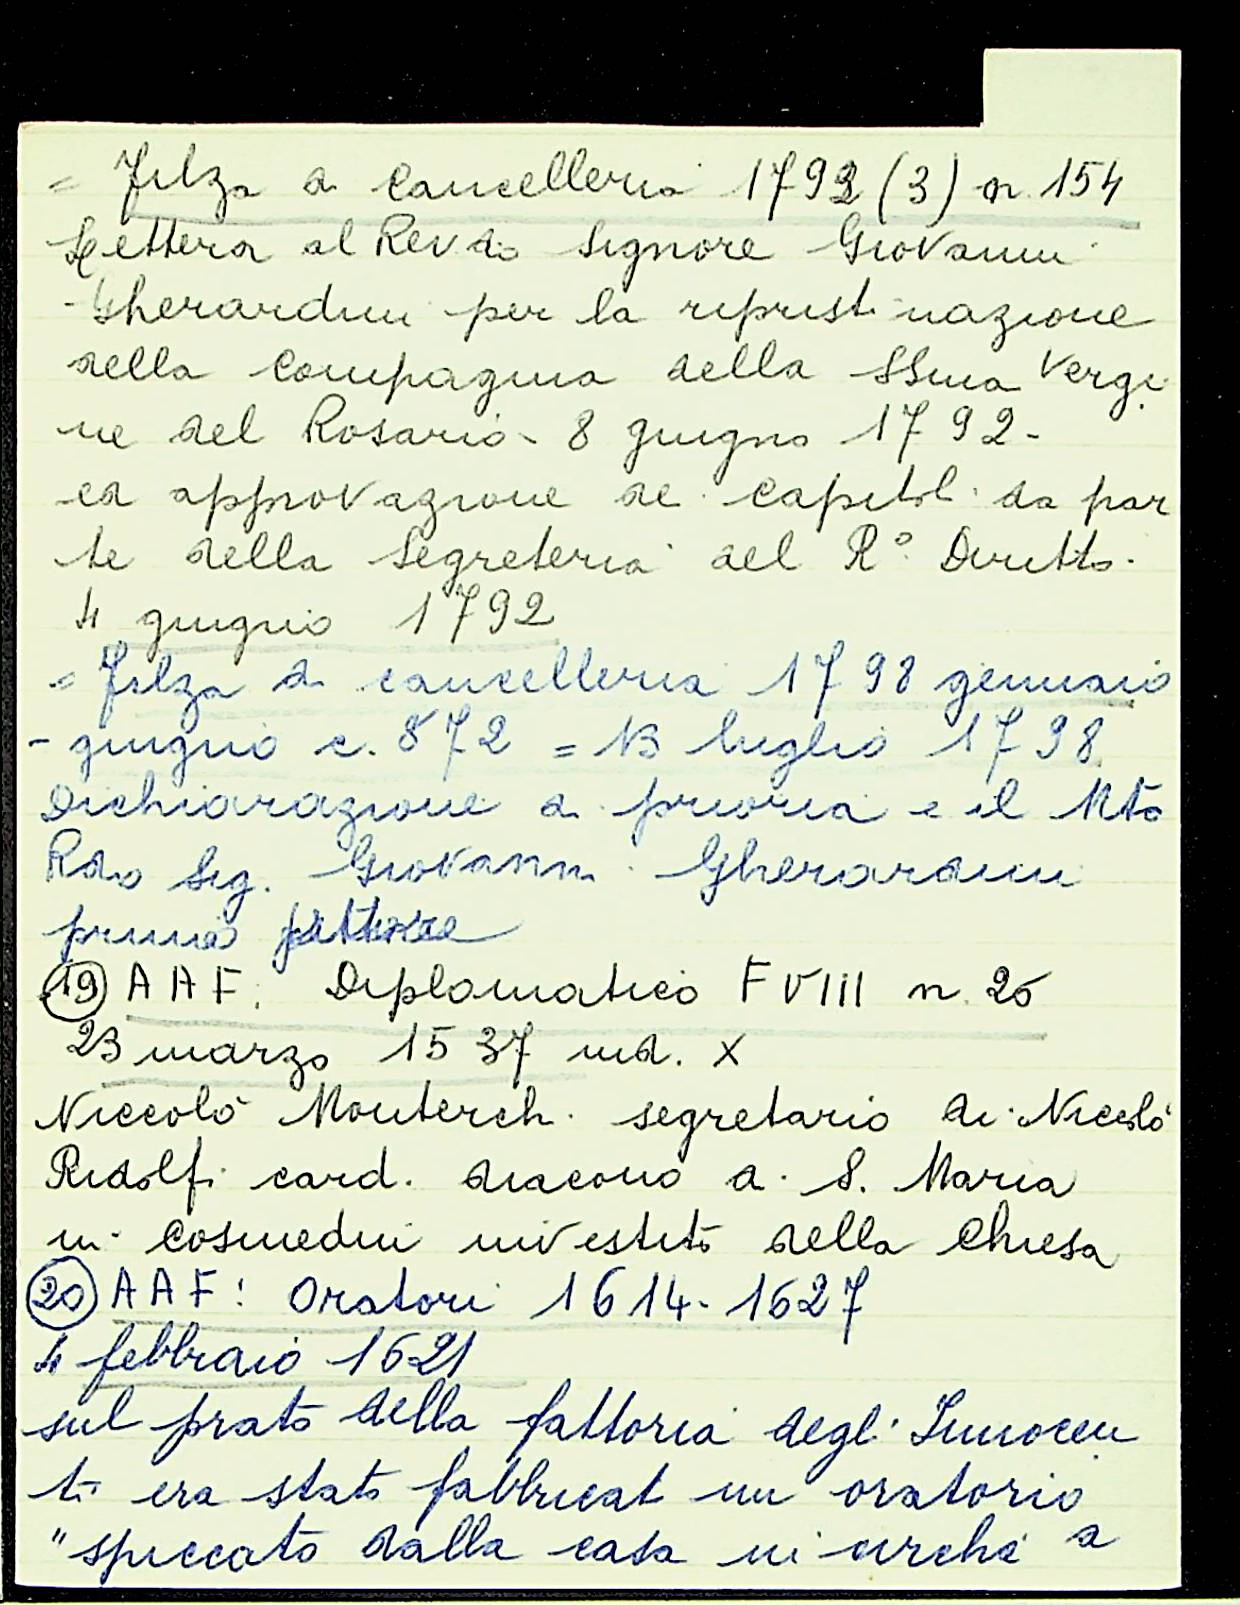 = Filza di Cancelleria 1792 (3) n. 154
Lettera al Revdo Signore Giovanni
Gherardini per la ripristinazione
della Compagnia della SSma Vergi
ne del Rosario - 8 giugno 1792 -
ed approvazione de capitoli da par
te della Segreteria del R° Diritto.
4 giugno 1792
= Filza di cancelleria 1798 gennaio
- giugno c. 872 = 13 luglio 1798
Dichiarazione di prioria e il Mto
Rdo Sig. Giovanni Gherardini
primo
(19) AAF: Diplomatico F VIII n. 26
23 marzo 1537 ind. X
Niccolò Monterchi segretario di Niccolò
Ridolfi card. diacono di S. Maria
in Cosmedin investito della Chiesa
(20) AAF: Oratori 1614-1627
4 febbraio 1621
sul prato della fattoria degli Innocen
ti era stato fabbricat un oratorio
"spiccato dalla casa